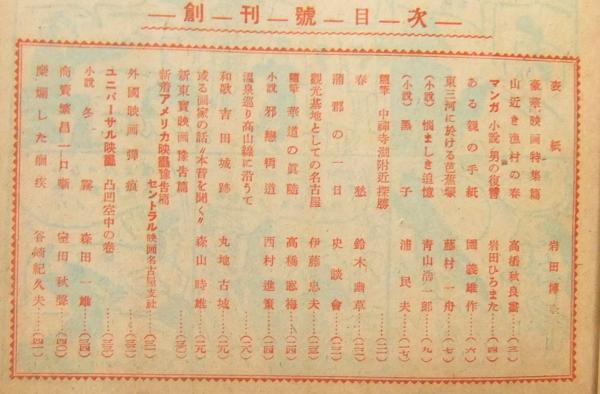 創刊號目次
表紙 岩田博
豪華映画特集篇
山近き漁村の春 高橋秋良畫 (三)
マンガ小説 男の復讐 岩田ひろまた (四)
ある親の手紙 國義雄作 (六)
東三河に於ける芭蕉塚 藤村一舟 (七)
(小説) 悩ましき追憶 青山浩一郎 (九)
(小説) 黒子 浦民夫 (一七)
隨筆 中禪寺湖附近探勝 (二一)
春愁 鈴木幽草 (二二)
蒲郡の一日 史談會 (二三)
觀光基地としての名古屋 伊藤忠夫 (二三)
隨筆 華道の眞随 高橋 梅 (二四)
小説 邪戀街道 西村進策 (二四)
温泉巡り高山線に沿うて (二八)
和歌 吉田城跡 丸地古城 (二九)
或る画家の話"本音を聞く" 森山時雄 (二九)
新東寶映画豫告篇 (三〇)
新着アメリカ映画豫告篇 セントラル映画名古屋支社 (三一)
外國映画彈痕
ユニバーサル映画 凸凹空中の巻
小説 冬霧 森田一雄
商賣繁昌一口噺 窪田秋聲 (四〇)
糜爛した痼疾 谷崎紀久夫 (四一)